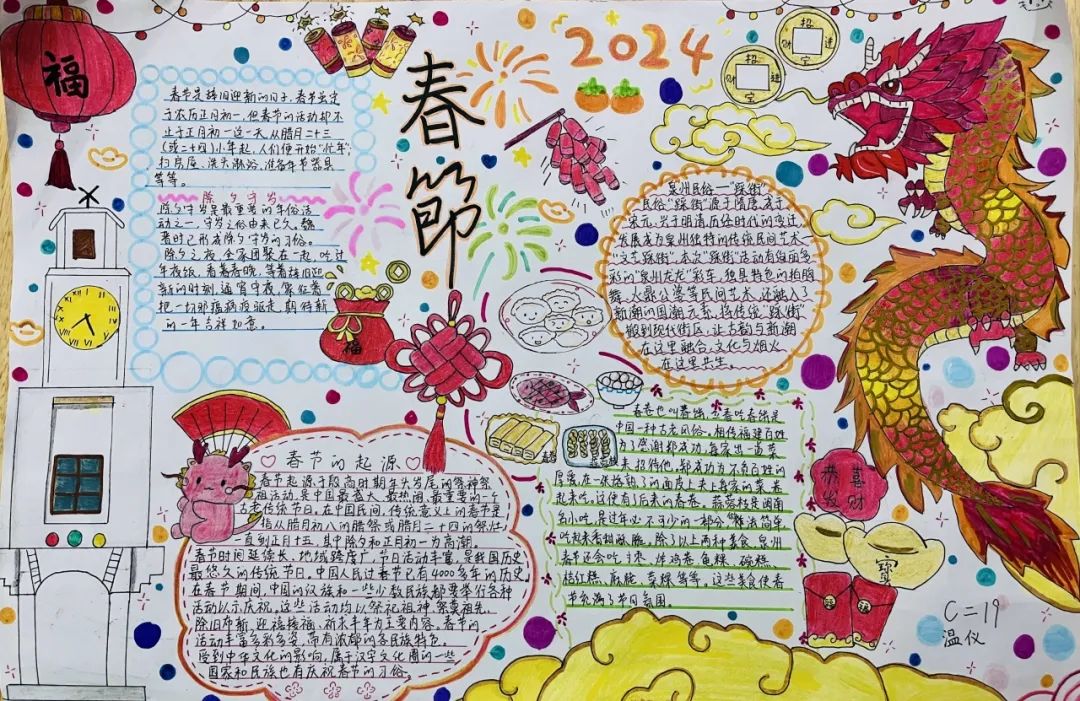 福
春節
2024
招
财
进
宝
招
财
进
宝
春节是辞旧迎新的日子，春节虽定
于农历正月初一，但春节的活动却不
止于正月初一这一天。从腊月二十三
(或二十四)小年起，人们便开始"忙年"：
扫房屋、洗头沐浴、准备年节器具
等等。
除夕守岁
除夕守岁是最重要的年俗活
动之一，守岁之俗由来已久。
着时已形成除夕守岁的习俗。
除夕之夜，全家团聚在一起，吃过
年夜饭，看着春晚，等着辞旧迎
新的时刻，通宵守夜，象征着
把一切邪瘟病疫驱走，期待新
的一年吉祥如意。
福
泉州民俗—"踩街"
民俗"踩街"源于隋唐，盛于
宋元，兴于明清，历经时代的变迁，
发展成为泉州独特的传统民间艺术
"文艺踩街"。本次"踩街"活动有绚丽多
彩的"泉州龙龙"彩车，独具特色的拍胸
舞、火鼎公婆等民间艺术，还融入了
新潮的国潮元素，将传统"踩街"
搬到现代街区，让古韵与新潮
在这里融合，文化与烟火
在这里共生。
春卷也叫春饼，立春吃春饼是
中国一种古老风俗。相传福建百姓
为了感谢郑成功，每家出一道菜
来招待他，郑成功为不负百姓的
厚爱，在一张烙熟了的面皮上夹上每家的菜，卷
起来吃，这便有了后来的春卷。蒜蓉枝是闽南
名小吃，是过年必不可少的一部分，做法简单，
吃起来香甜酥脆。除了以上两种美食，泉州
春节还会吃上枣、炸鸡卷、龟粿、碗糕、
桔红糕、麻粩、菜粿等等，这些美食使春
节充满了节日氛围。
春节的起源
春节起源于殷商时期年头岁尾的祭神祭
祖活动，是中国最盛大、最热闹、最重要的一个
古老传统节日。在中国民间，传统意义上的春节是
指从腊月初八的腊祭或腊月二十四的祭灶，
一直到正月十五，其中除夕和正月初一为高潮。
春节时间延续长、地域跨度广，节日活动丰富，是我国历史
最悠久的传统节日。中国人民过春节已有4000多年的历史，
在春节期间，中国的汉族和一些少数民族都要举行各种
活动以示庆祝。这些活动均以祭祀祖神、祭奠祖先、
除旧布新、迎禧接福、祈求丰年为主要内容。春节的
活动丰富多彩多姿，带有浓郁的各民族特色。
受到中华文化的影响，属于汉字文化圈的一些
国家和民族也有庆祝春节的习俗。
恭喜
发财
寶
C=19
温仪